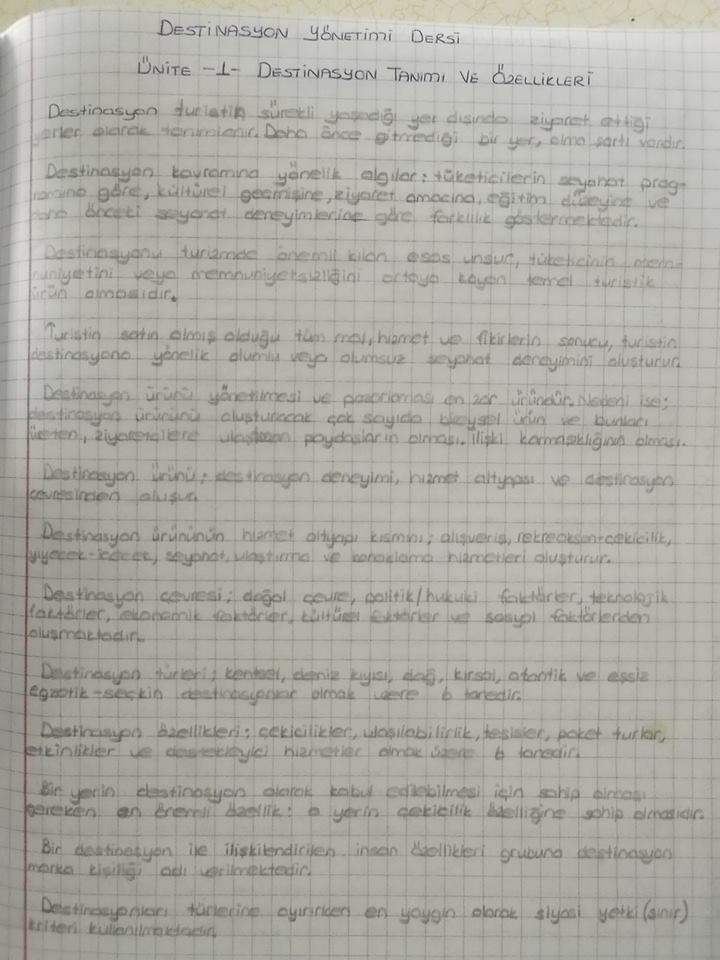 DESTİNASYON YÖNETİMİ DERSİ
ÜNİTE -1- DESTİNASYON TANIMI VE ÖZELLİKLERİ
Destinasyon turistin sürekli yaşadığı yer dışında ziyaret ettiği
yerler olarak tanımlanır. Daha önce gitmediği bir yer, olma şartı vardır.
Destinasyon kavramına yönelik algılar: tüketicilerin seyahat prog-
ramına göre, kültürel geçmişine, ziyaret amacına, eğitim düzeyine ve
daha önceki seyahat deneyimlerine göre farklılık göstermektedir.
Destinasyonu turizmde önemli kılan esas unsur, tüketicinin mem-
nuniyetini veya memnuniyetsizliğini ortaya koyan temel turistik
ürün olmasıdır.
Turistin satın almış olduğu tüm mal, hizmet ve fikirlerin sonucu, turistin
destinasyona yönelik olumlu veya olumsuz seyahat deneyimini oluşturur.
Destinasyon ürünü yönetilmesi ve pazarlaması en zor üründür. Nedeni ise;
destinasyon ürününü oluşturacak çok sayıda bireysel ürün ve bunları
üreten, ziyaretçilere ulaştıran paydaşların olması. İlişki karmaşıklığının olması.
Destinasyon ürünü; destinasyon deneyimi, hizmet altyapısı ve destinasyon
çevresinden oluşur.
Destinasyon ürününün hizmet altyapı kısmını; alışveriş, rekreakson-çekicilik,
yiyecek-içecek, seyahat, ulaştırma ve konaklama hizmetleri oluşturur.
Destinasyon çevresi; doğal çevre, politik/hukuki faktörler, teknolojik
faktörler, ekonomik faktörler, kültürel faktörler ve sosyal faktörlerden
oluşmaktadır.
Destinasyon türleri; kentsel, deniz kıyısı, dağ, kırsal, otantik ve eşsiz
egzotik-seçkin destinasyonlar olmak üzere 6 tanedir.
Destinasyon özellikleri; çekicilikler, ulaşılabilirlik, tesisler, paket turlar,
etkinlikler ve destekleyici hizmetler olmak üzere 6 tanedir.
Bir yerin destinasyon olarak kabul edilebilmesi için sahip olması
gereken en önemli özellik: o yerin çekicilik özelliğine sahip olmasıdır.
Bir destinasyon ile ilişkilendirilen insan özellikleri grubuna destinasyon
marka kişiliği adı verilmektedir.
Destinasyonları türlerine ayırırken en yaygın olarak siyasi yetki (sınır)
kriteri kullanılmaktadır.